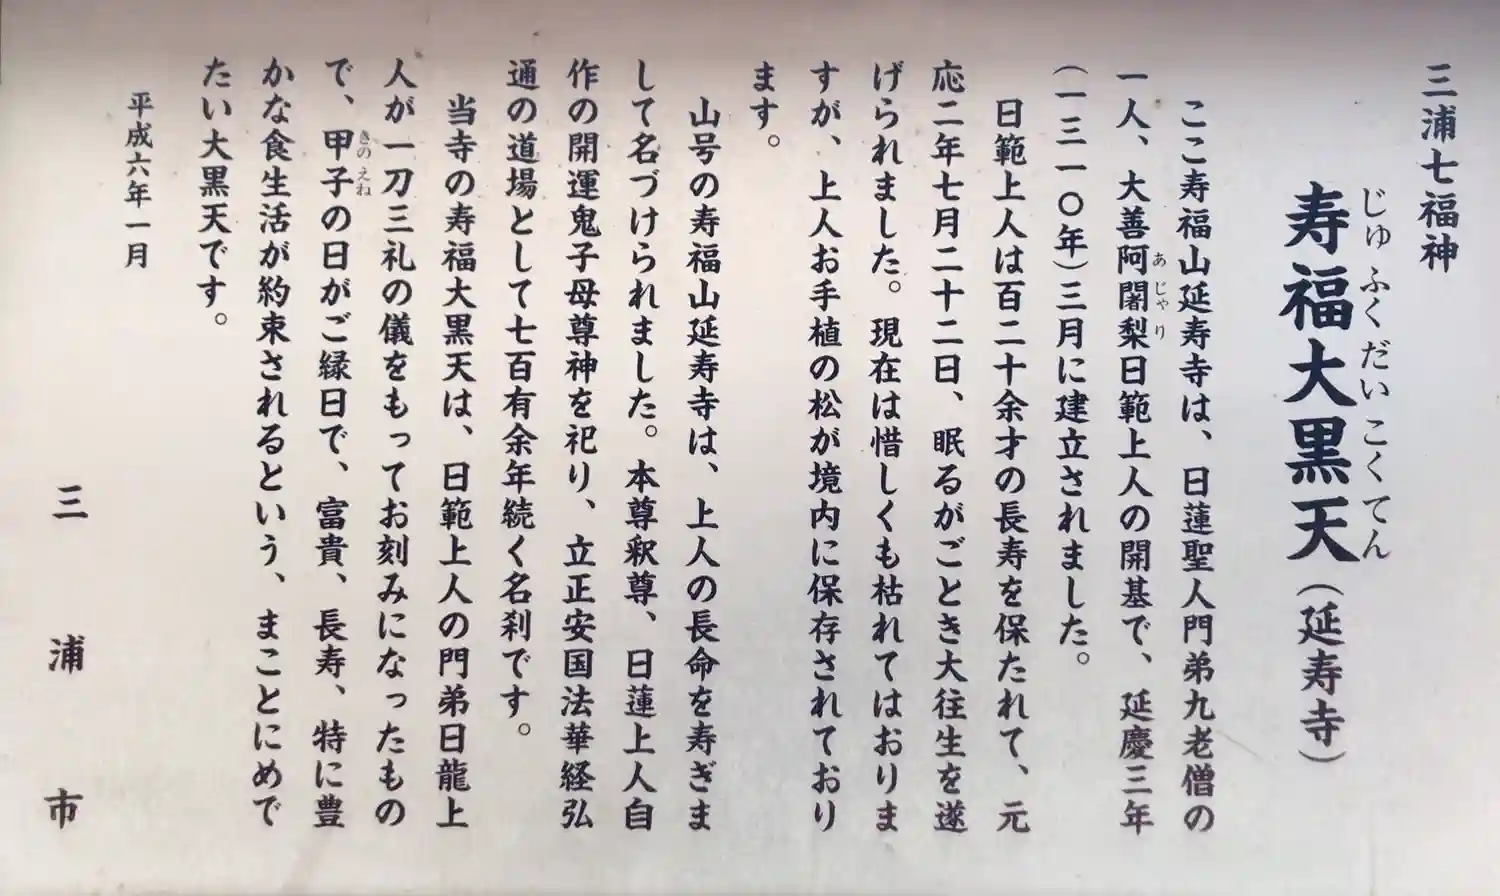 三浦七福神
じゅふくだいこくてん
寿福大黒天(延寿寺)
ここ寿福山延寿寺は、日蓮聖人門弟九老僧の
一人、大善阿闍梨日範上人の開基で、延慶三年
あじゃり
(一三一〇年)三月に建立されました。
日範上人は百二十余才の長寿を保たれて、元
応二年七月二十二日、眠るがごとき大往生を遂
げられました。現在は惜しくも枯れてはおりま
すが、上人お手植の松が境内に保存されており
ます。
山号の寿福山延寿寺は、上人の長命を寿ぎま
して名づけられました。本尊釈尊、日蓮上人自
作の開運鬼子母尊神を祀り、立正安国法華経弘
通の道場として七百有余年続く名刹です。
当寺の寿福大黒天は、日範上人の門弟日龍上
人が一刀三礼の儀をもってお刻みになったもの
きのえね
で、甲子の日がご縁日で、富貴、長寿、特に豊
かな食生活が約束されるという、まことにめで
たい大黒天です。
平成六年一月
三浦市